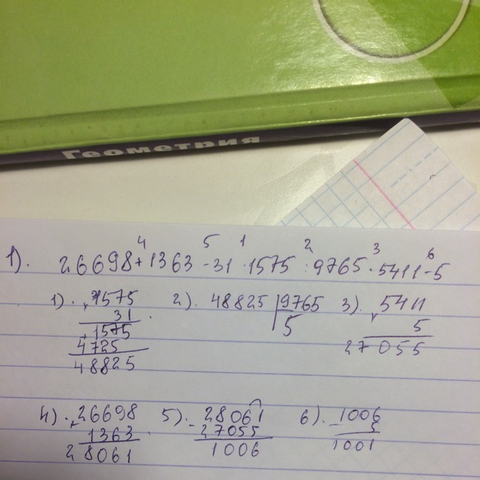 Геометрия
4 5 1 2 3 6
1). 26698+1363-31·1575:9765·5411-5
1). 1575 2). 48825 9765 3). 5411
31 5 5
1575 27055
4725
48825
4). 26698 5). 28061 6). 1006
+ 1363 - 27055 - 5
28061 1006 1001